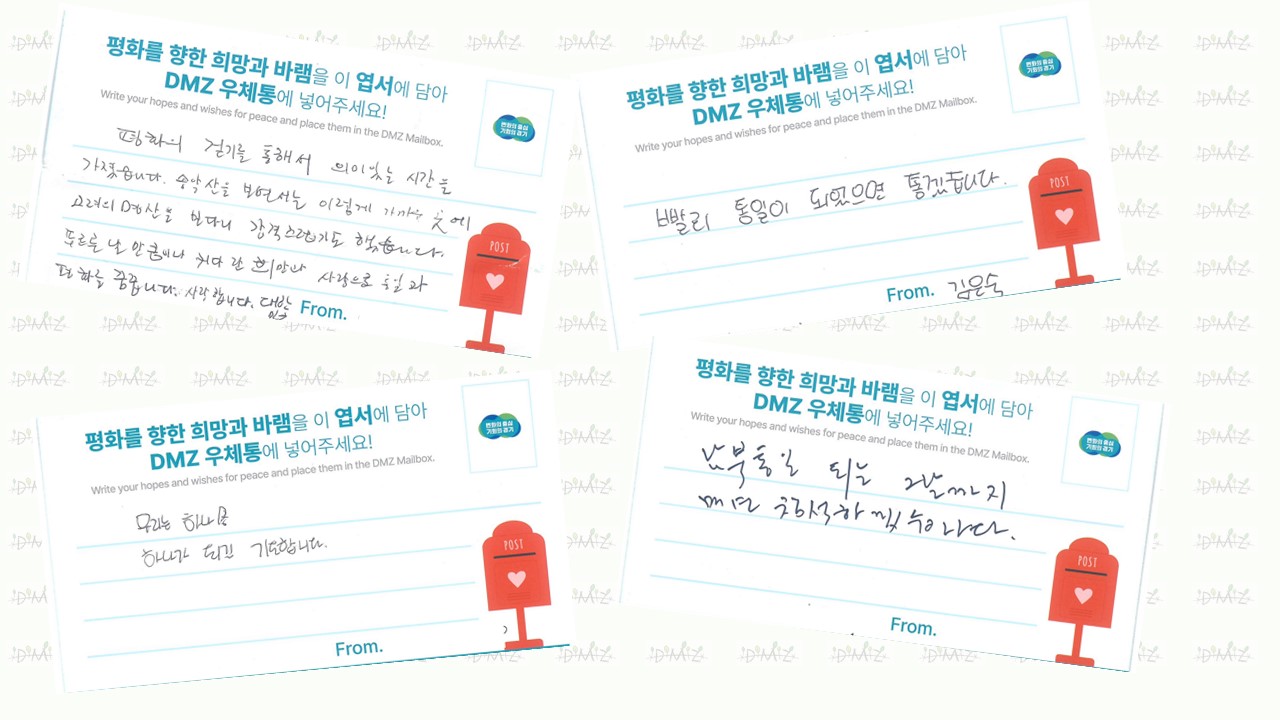 평화를 향한 희망과 바램을 이 엽서에 담아
DMZ 우체통에 넣어주세요!
Write your hopes and wishes for peace and place them in the DMZ Mailbox.
변화의 중심
기회의 경기
평화의 걷기를 통해서 의미있는 시간을
가졌습니다. 송악산을 보면서는 이렇게 가까운 곳에
고려의 명산을 보다니 감격스럽기도 했습니다.
푸르른 날 안 희망과 사랑으로 통일과
평화를 꿈꿉니다. 사랑합니다.
From.
POST
평화를 향한 희망과 바램을 이 엽서에 담아
DMZ 우체통에 넣어주세요!
Write your hopes and wishes for peace and place them in the DMZ Mailbox.
변화의 중심
기회의 경기
빨리 통일이 되었으면 좋겠습니다.
From. 김은숙
POST
평화를 향한 희망과 바램을 이 엽서에 담아
DMZ 우체통에 넣어주세요!
Write your hopes and wishes for peace and place them in the DMZ Mailbox.
변화의 중심
기회의 경기
우리는 하나임
하나가 되길 기도합니다.
From.
POST
평화를 향한 희망과 바램을 이 엽서에 담아
DMZ 우체통에 넣어주세요!
Write your hopes and wishes for peace and place them in the DMZ Mailbox.
변화의 중심
기회의 경기
남북통일 되는 그날까지
매년 참석하겠습니다.
From.
POST
DMZ